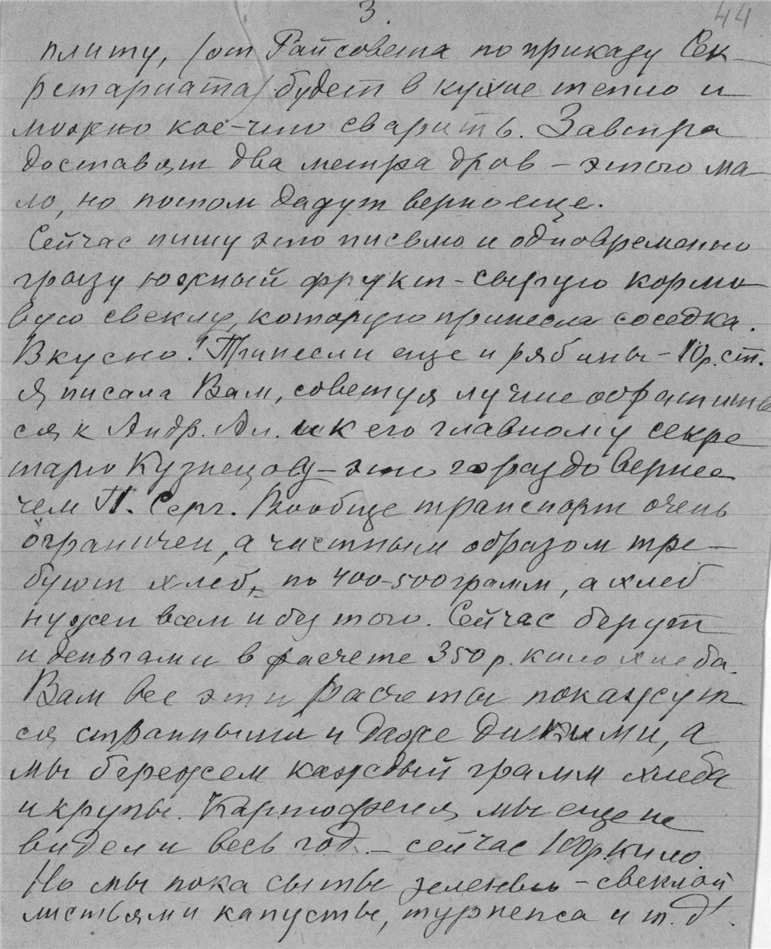 3.
44
плиту, /от Райсовета по приказу Сек-
ретариата/ будет в кухне тепло и
можно кое-что сварить. Завтра
доставят два метра дров – этого ма-
ло, но потом дадут верно еще.
Сейчас пишу это письмо и одновременно
грызу южный фрукт – сырую кормо-
вую свеклу, которую принесла соседка.
Вкусно! Принесли еще и рябины – 10 р. ст.
Я писала Вам, советуя лучше обратить
ся к Андр. Ал. и к его главному секре
тарю Кузнецову – это гораздо вернее
чем П. Серг. Вообще транспорт очень
ограничен, а частным образом тре-
буют хлеб, по 400-500 грамм, а хлеб
нужен всем и без того. Сейчас берут
и деньгами в расчете 350 р. кило хлеба.
Вам все эти расчеты покажут
ся странными и даже дикими, а
мы бережем каждый грамм хлеба
и крупы. Картофеля мы еще не
видели весь год – сейчас 100 р. кило
Но мы пока сыты зеленью – свеклой
листьями капусты, турнепса и т.д.